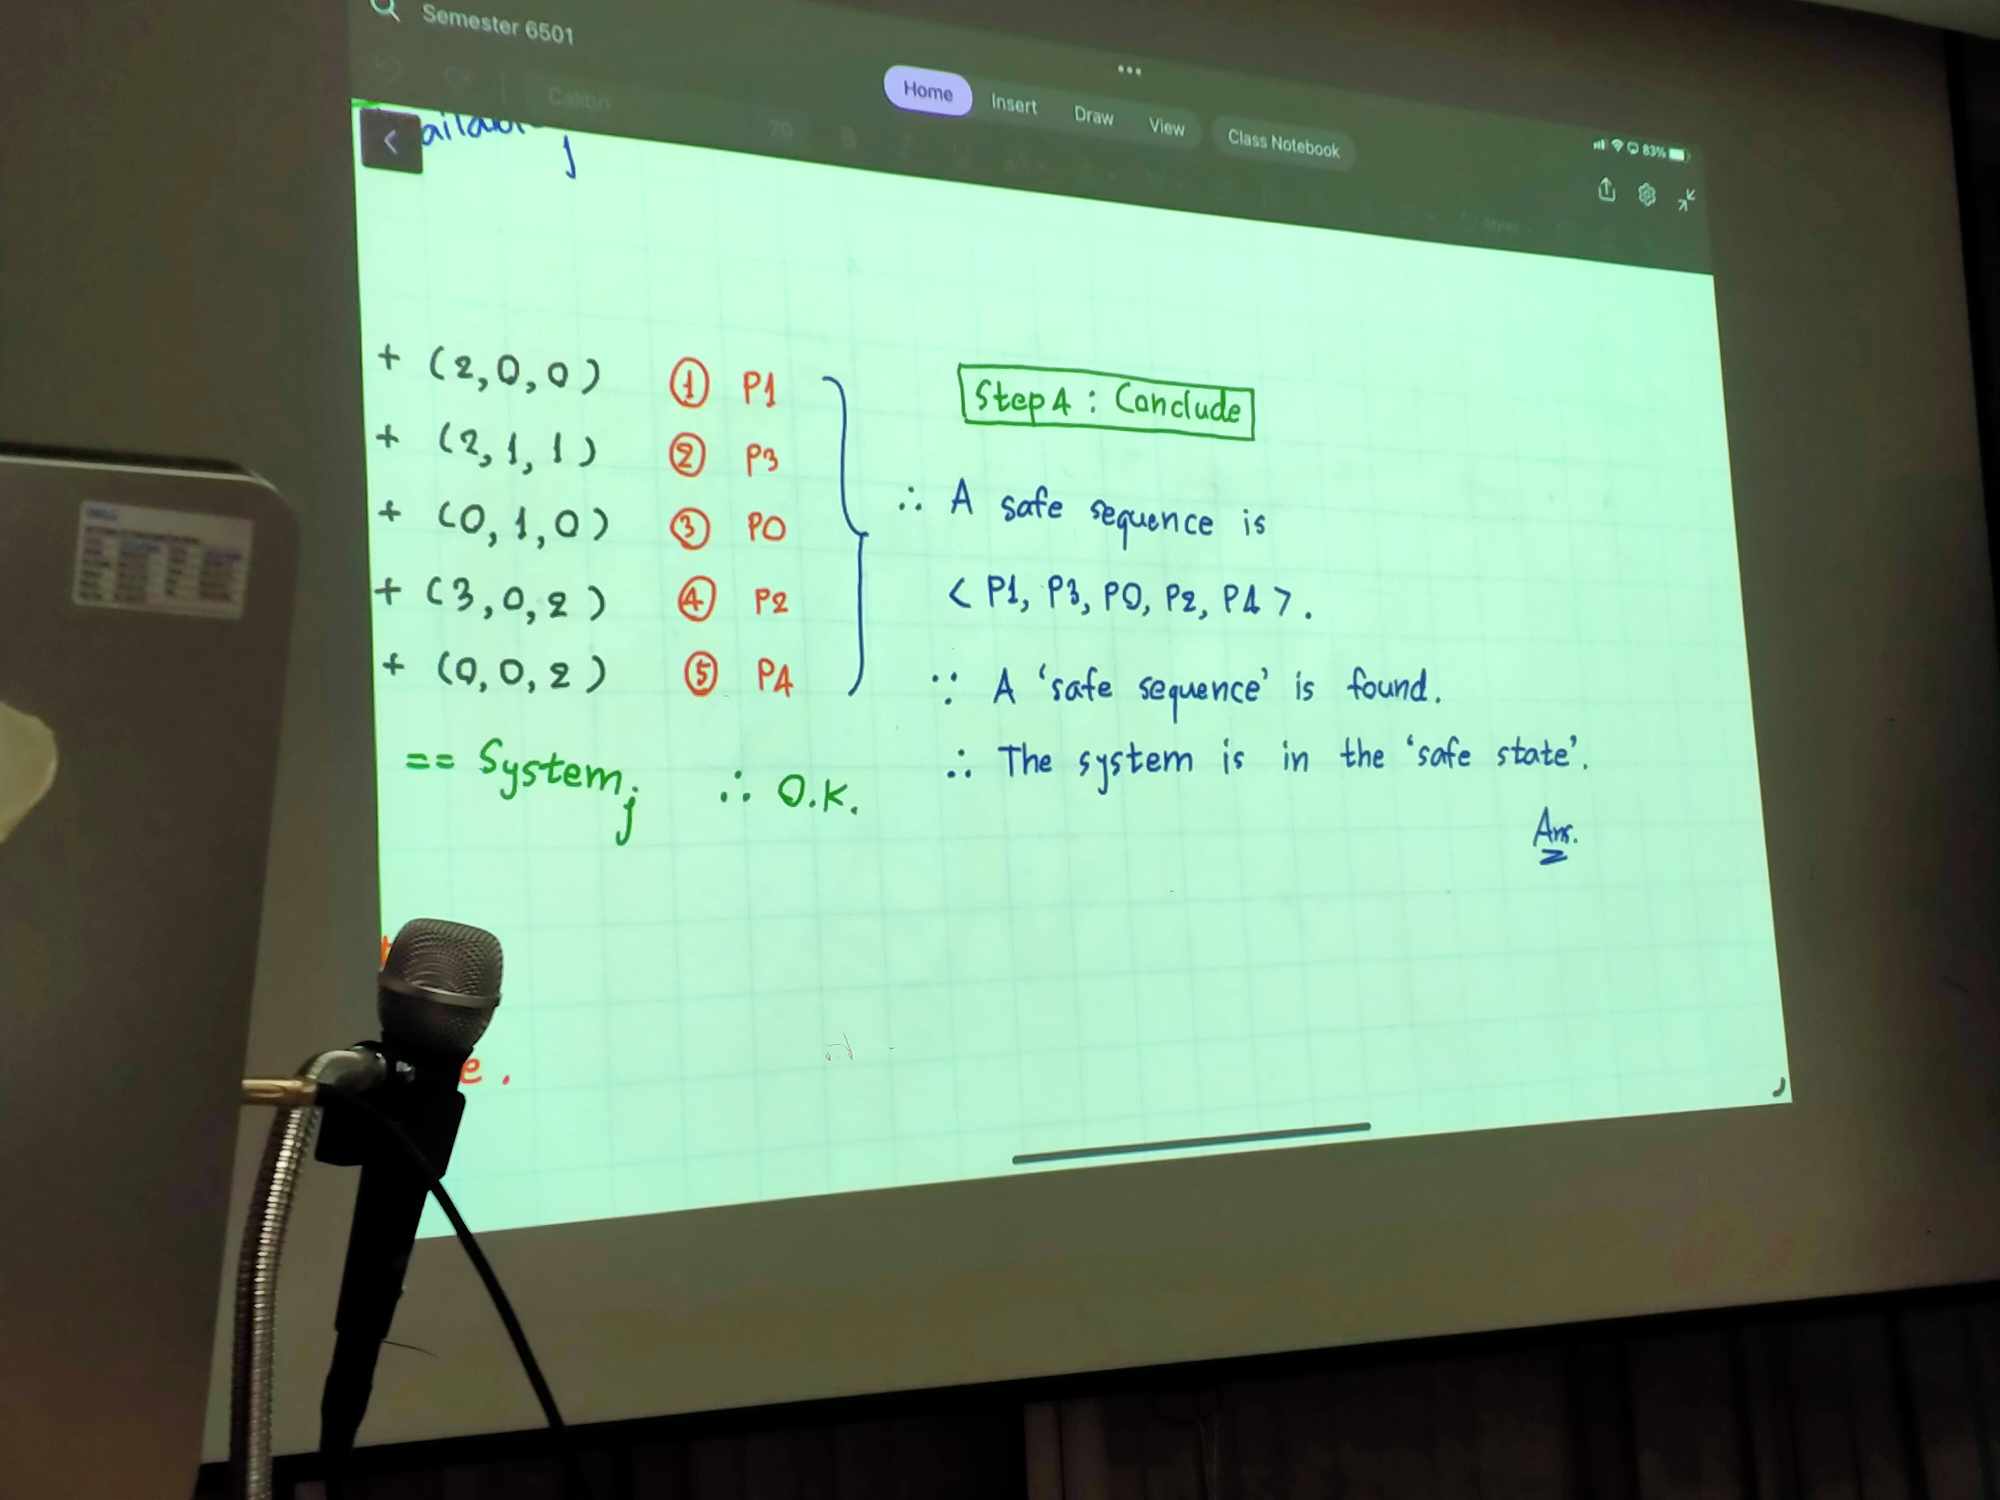 Semester 6501
Home Insert Draw View Class Notebook
83%
j
+ (2,0,0) ① P1
+ (2,1,1) ② P3
+ (0,1,0) ③ P0
+ (3,0,2) ④ P2
+ (0,0,2) ⑤ P4
== System j ∴ O.K.
Step 4 : Conclude
∴ A safe sequence is
< P1, P3, P0, P2, P4 >.
∵ A 'safe sequence' is found.
∴ The system is in the 'safe state'.
Ans.
e.